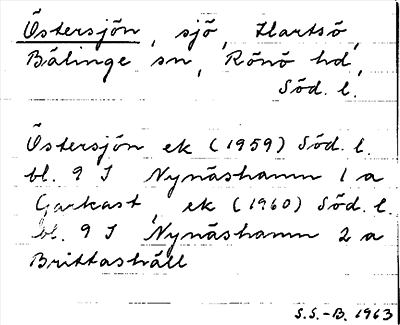 Östersjön, sjö, Hartsö,
Bälinge sn, Rönö hd,
Söd. l.
Östersjön ek (1959) Söd. l.
bl. 9 I Nynäshamn 1 a
Garkast, ek (1960) Söd. l.
bl. 9 I Nynäshamn 2 a
Brittashäll
S.S.-B. 1963